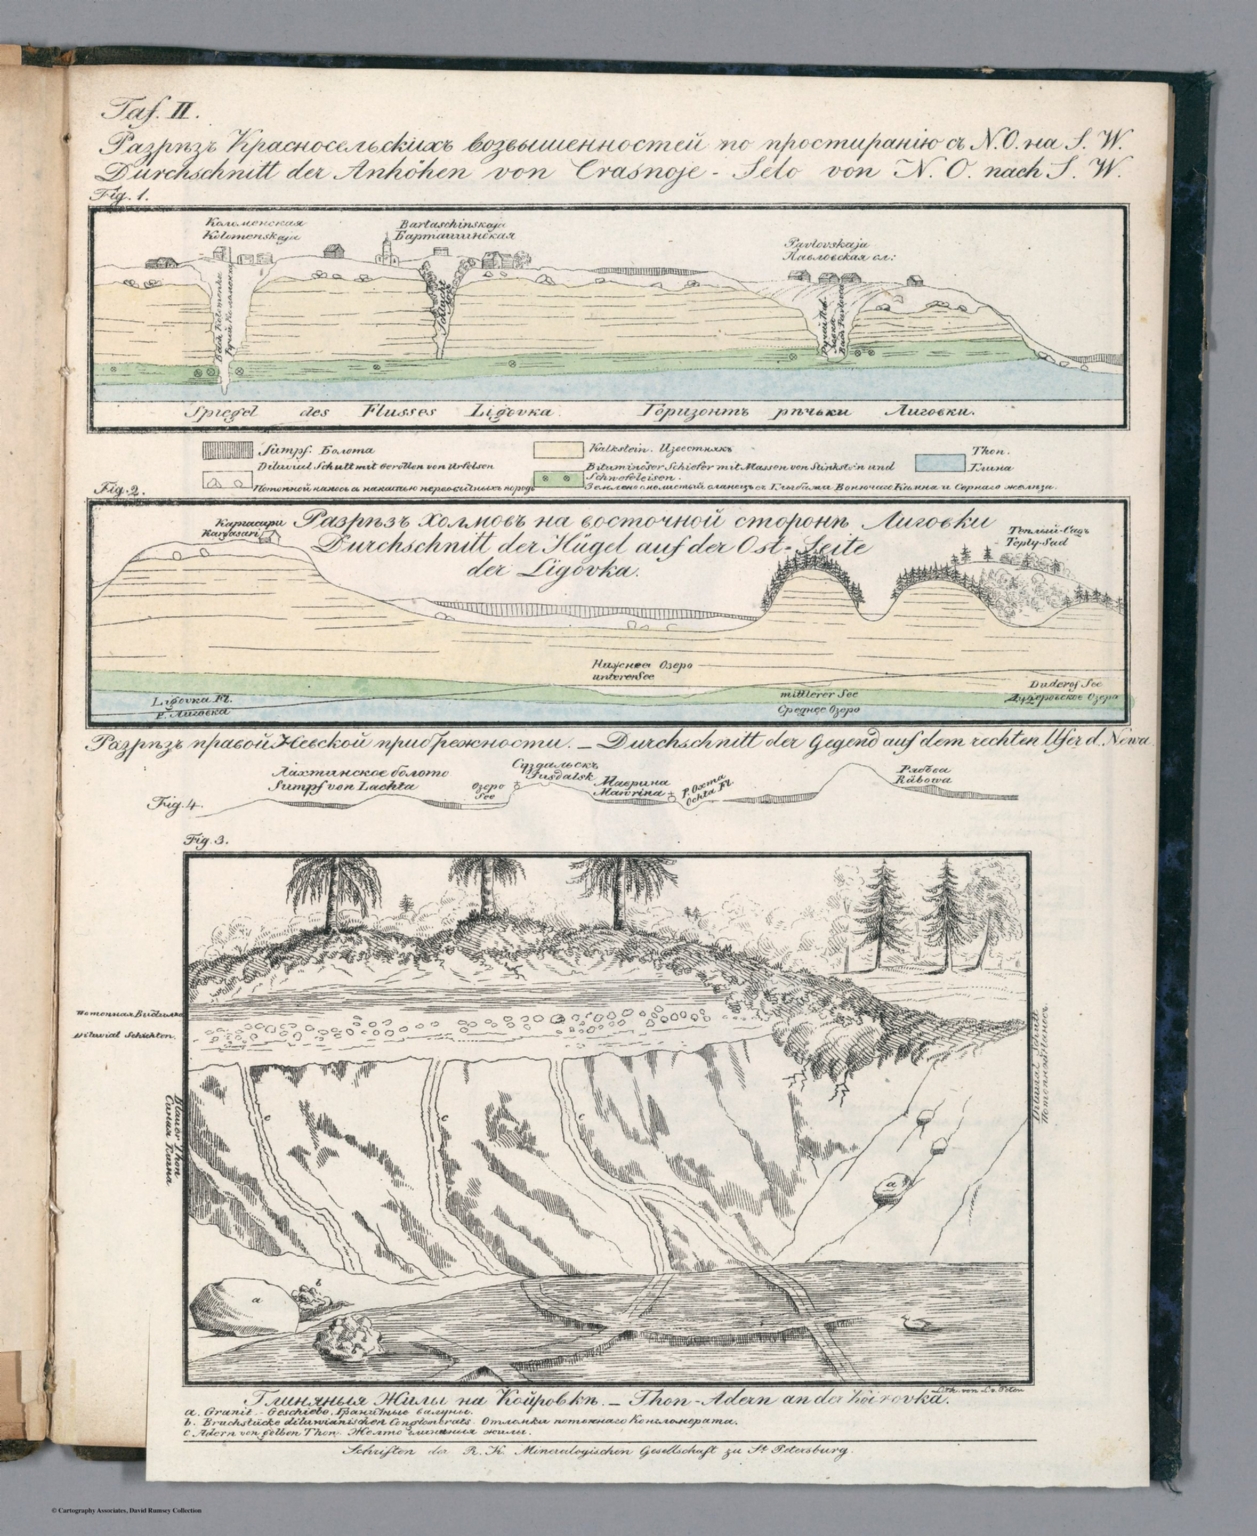 Taf. II.
Разрѣзъ Красносельскихъ возвышенностей по простиранію съ N.O. на S. W.
Durchschnitt der Anhöhen von Crasnoje-Selo von N. O. nach S. W.
Fig. 1.
Коломенская
Kolomenskaja
Bartaschinskaja
Барташинская
Pavlovskaja
Павловская сл:
Bach Kolomenka
Ручей Коломенка
Schlucht
Spiegel des Flusses Ligovka. Горизонтъ рѣчьки Лиговки.
Sumpf. Болота
Kalkstein. Известнякъ
Thon.
Глина
Diluvial Schutt mit Geröllen von Urfelsen
Потопной наносъ съ
Bituminöser Schiefer mit Massen von Stinkstein und
Schwefeleisen.
Вонючаго Камня и Сернаго железа.
Fig. 2.
Каргасари
Kargasari
Разрѣзъ Холмовъ на восточной сторонѣ Лиговки
Durchschnitt der Hügel auf der Ost-Seite
der Ligovka.
Теплый-Садъ
Teply-Sad
Нижнее Озеро
unterer See
Ligovka Fl.
Р. Лиговка
mittlerer See
Среднее Озеро
Duderof See
Дудеровское Озеро
Разрѣзъ правой Невской прибрежности. – Durchschnitt der Gegend auf dem rechten Ufer d. Newa
Fig. 4.
Лахтинское болото
Sumpf von Lachta
Озеро
See
Суздальскъ
Susdalsk
Маврина
Mawrina
Р. Охта
Ochta Fl.
Рябова
Räbowa
Fig. 3.
Diluvial Schichten.
Blauer Thon
Синяя Глина
Diluvial Schutt
c
c
c
a
a
b
Lith. von
Глиняныя Жилы на Койровкѣ. – Thon-Adern an der Koirovka.
a. Granit-Geschiebe. Гранитные валуны.
b. Bruchstücke diluvianischen Conglomerats. Отломки потопнаго Конгломерата.
c Adern von gelben Thon. Желто глиняныя жилы.
Schriften der R. K. Mineralogischen Gesellschaft zu St Petersburg.
© Cartography Associates, David Rumsey Collection